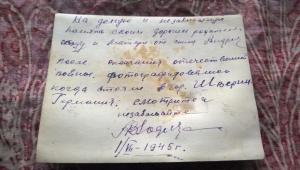 На долгую и незабываемую
память своим дорогим родителям
от сына Андрея
после окончания отечественной
войны, фотографировался
когда стояли в гор. Шверин
Германия, смотрите и
не забывайте
1/VI-1945 г.